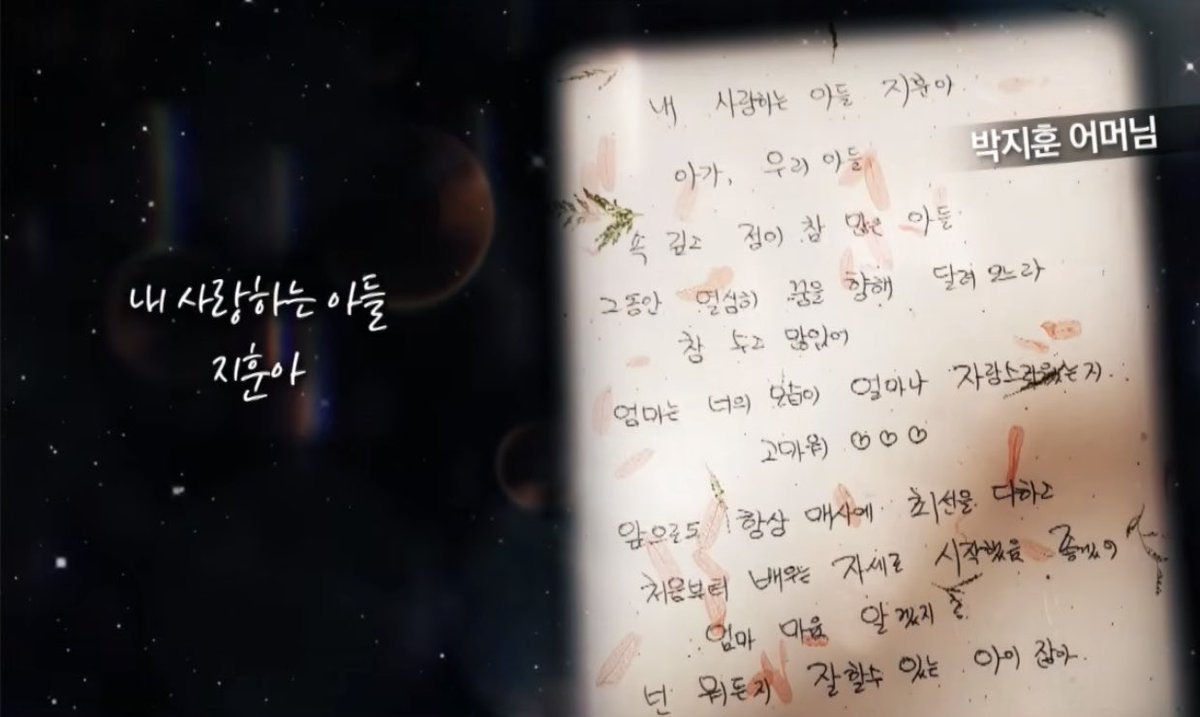 내 사랑하는 아들
지훈아
박지훈 어머님
내 사랑하는 아들 지훈아
아가, 우리 아들
속 깊고 정이 참 많은 아들
그동안 열심히 꿈을 향해 달려 오느라
참 수고 많았어
엄마는 너의 모습이 얼마나 자랑스러웠는지..
고마워 ♡♡♡
앞으로도 항상 매사에 최선을 다하고
처음부터 배우는 자세로 시작했음 좋겠어
엄마 마음 알겠지
넌 뭐든지 잘할수 있는 아이 잖아